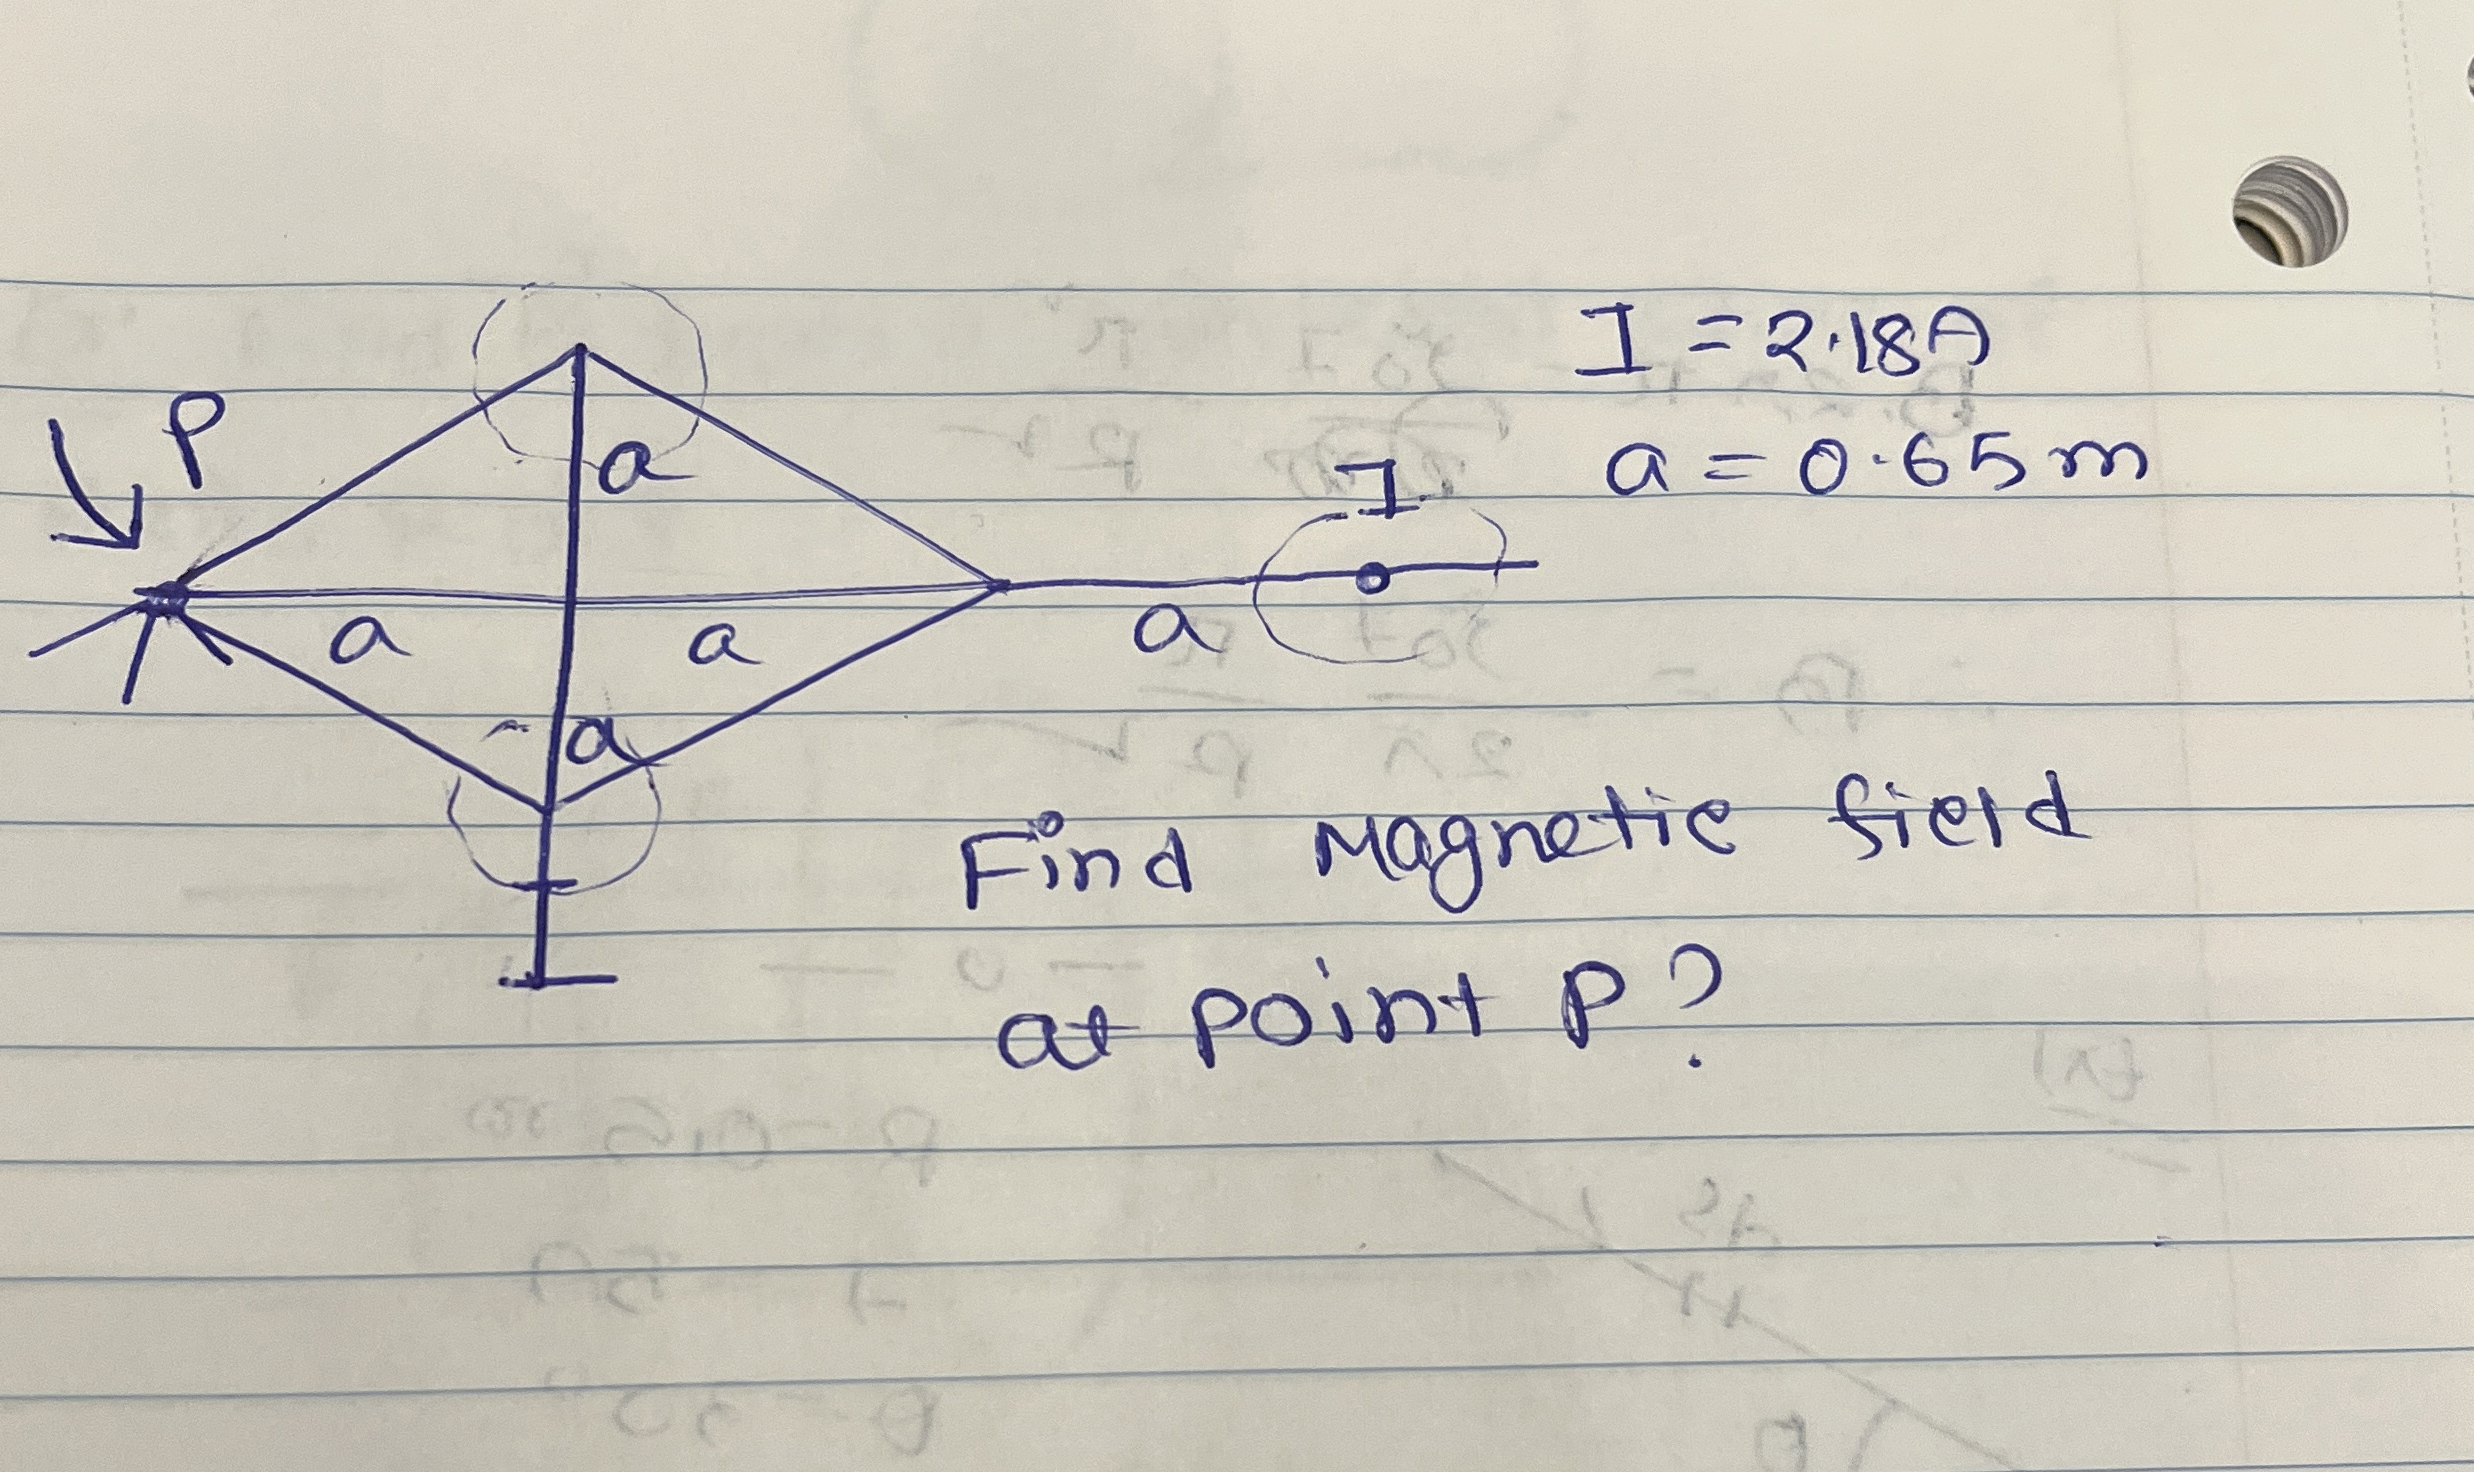 I = 2.18A
P
a = 0.65 m
a
I
a a a
a
Find Magnetic field
at point P?